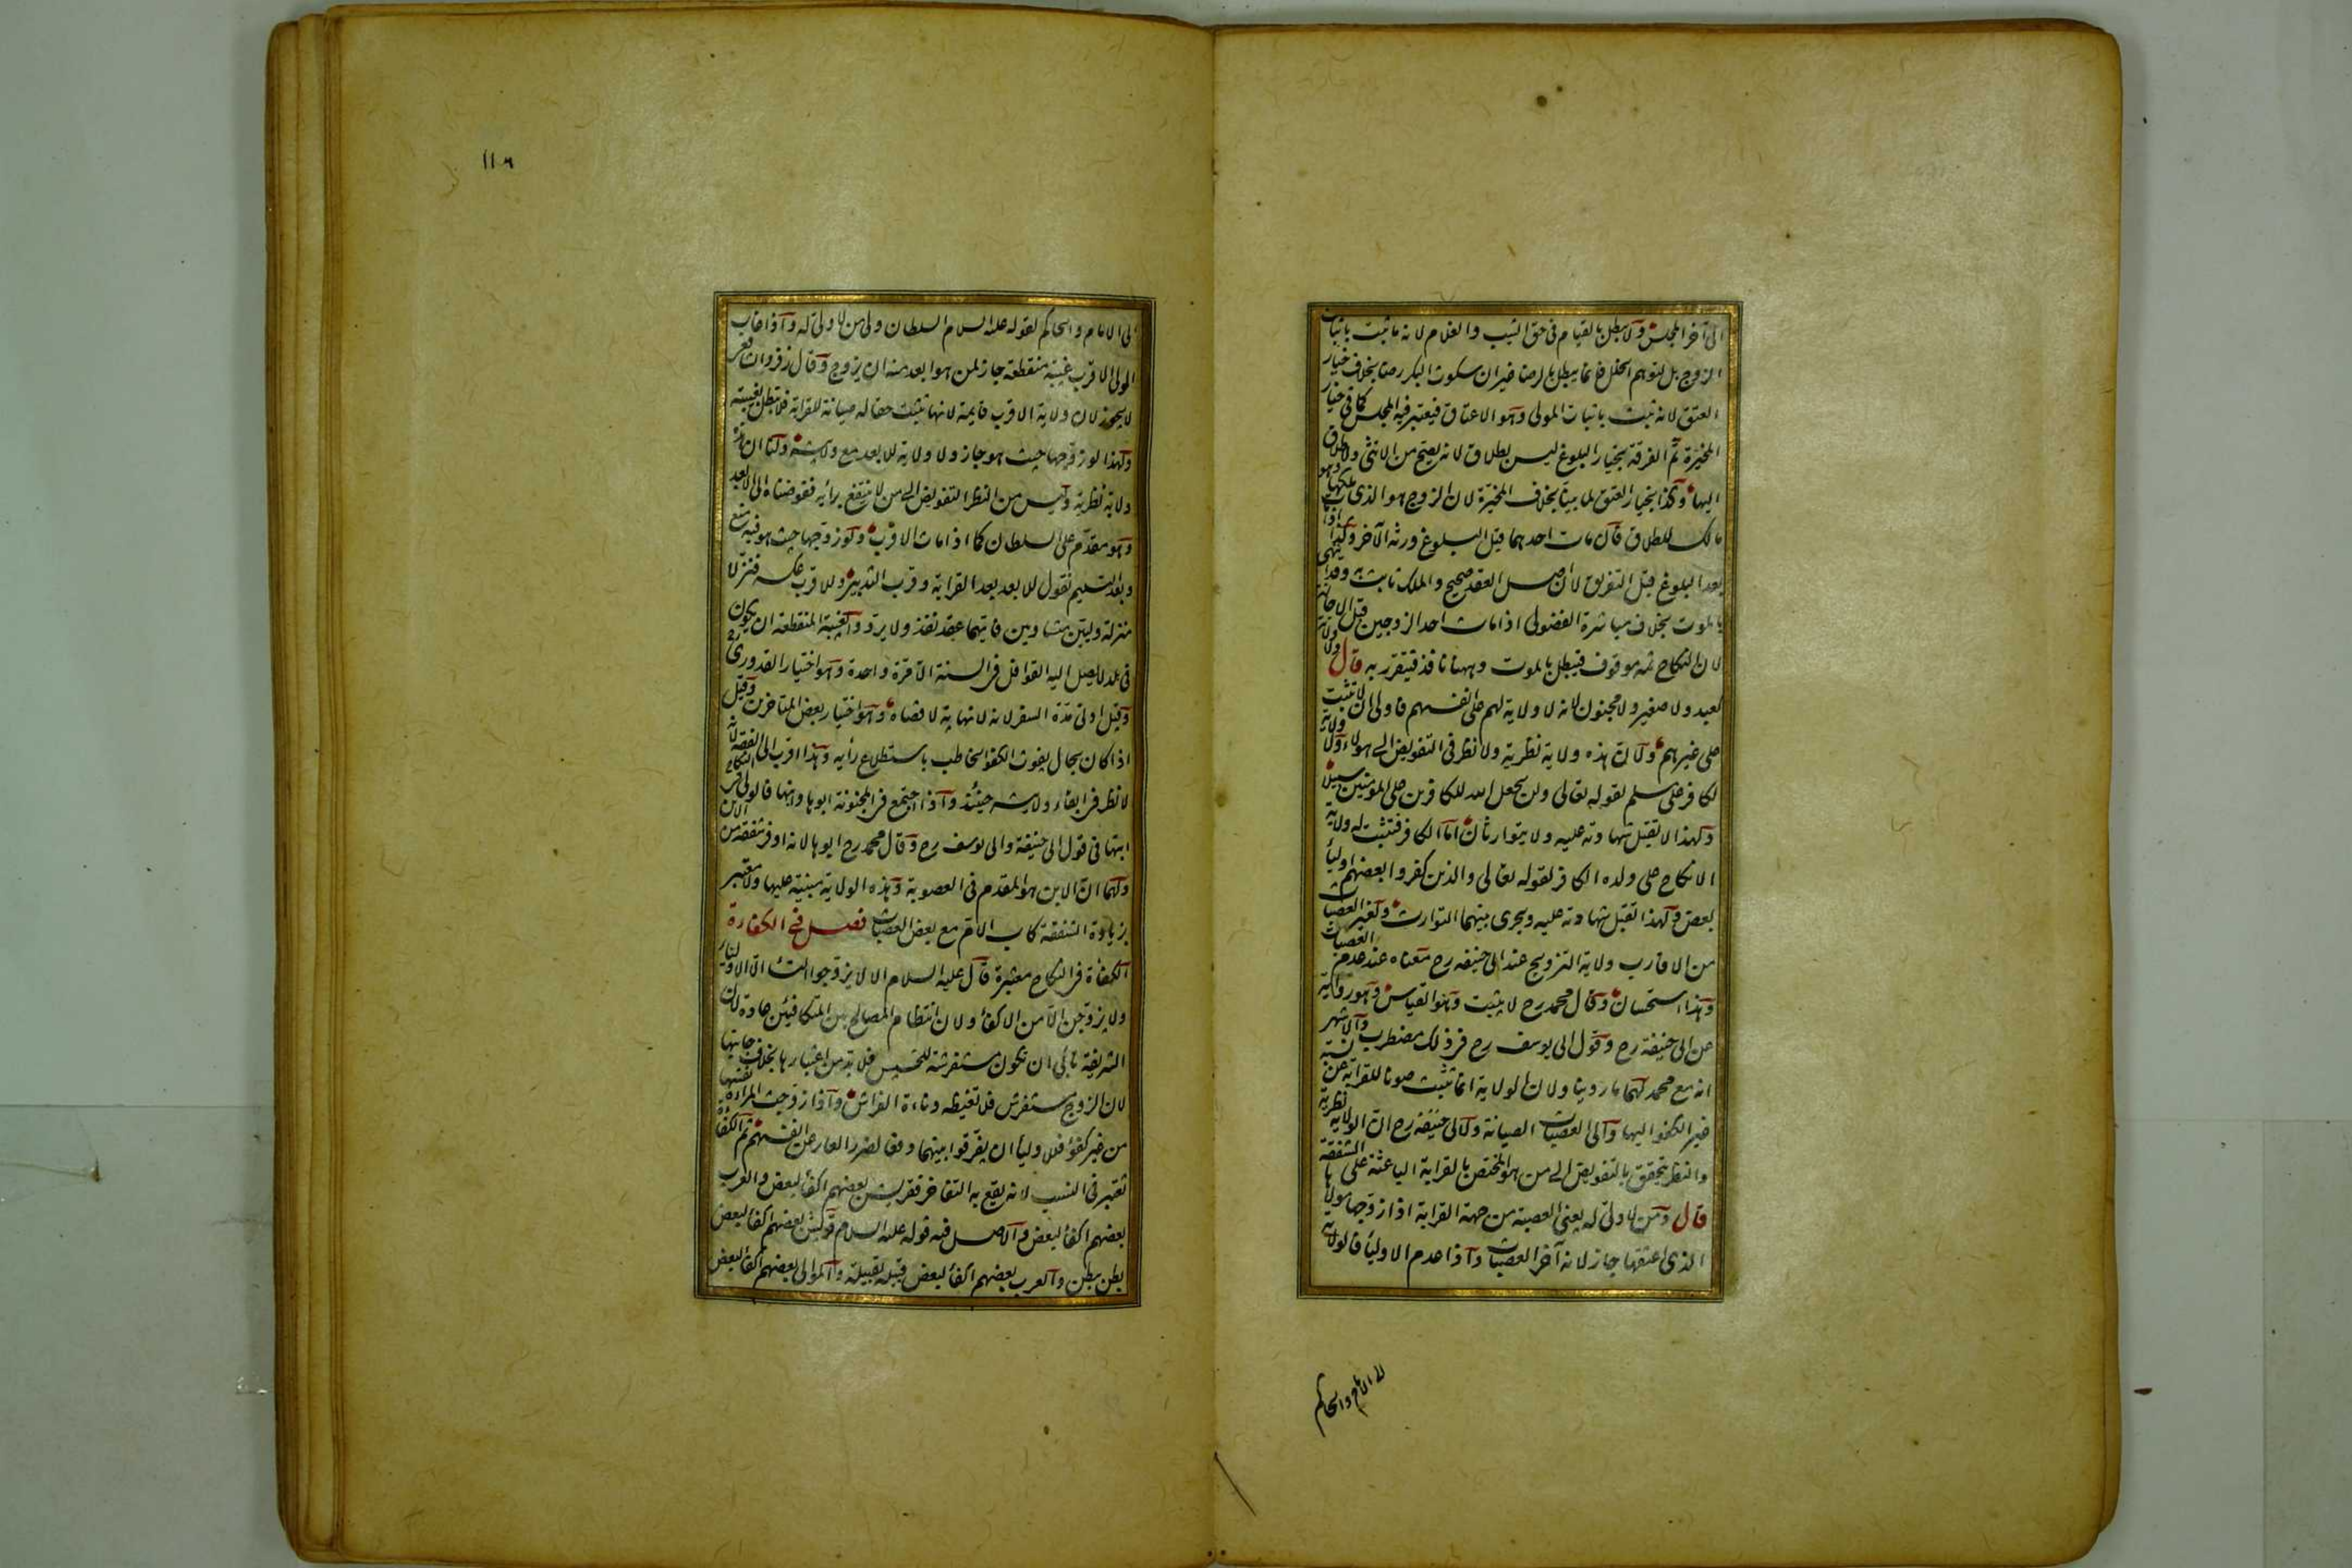 الى آخر المجلس ولا يبطل بالقيام فى حق الثيب والغلام لانه ما ثبت باثبات
الزوج بل لتوهم الخلل فانما يبطل بالرضا غير ان سكوت البكر رضا بخلاف خيار
العتق لانه ثبت باثبات المولى وهو الاعتاق فيعتبر فيه المجلس كما فى خيار
المخيّرة ثم الفرقة بخيار البلوغ ليس بطلاق لانه يصح من الانثى ولا طلاق
اليها وكذا بخيار العتق لما بينا بخلاف المخيّرة لان الزوج هو الذى ملكها وهو
مالك للطلاق قال مات احدهما قبل البلوغ ورثه الآخر وكذا اذا مات
بعد البلوغ قبل التفريق لان اصل العقد صحيح والملك ثابت به وقد انتهى
بالموت بخلاف مباشرة الفضولى اذا مات احد الزوجين قبل الاجازة
لان النكاح ثمه موقوف فيبطل بالموت وههنا نافذ فيتقرر به قال ولا ولاية
لعبد ولا صغير ولا مجنون لانه لا ولاية لهم على انفسهم فاولى ان لا تثبت
على غيرهم ولان هذه ولاية نظرية ولا نظر فى التفويض الى هولاء ولا ولاية
لكافر على مسلم لقوله تعالى ولن يجعل الله للكافرين على المؤمنين سبيلا
ولهذا لا تقبل شهادته عليه ولا يتوارثان اما الكافر فتثبت له ولاية
الانكاح على ولده الكافر لقوله تعالى والذين كفروا بعضهم اولياء
بعض ولهذا تقبل شهادته عليه ويجرى بينهما التوارث ولغير العصبات
من الاقارب ولاية التزويج عند ابى حنيفه رح معناه عند عدم العصبات
وهذا استحسان وقال محمد رح لا يثبت وهو القياس وهو رواية
عن ابى حنيفة رح وقول ابى يوسف رح فى ذلك مضطرب والاشهر
انه مع محمد لهما ما روينا ولان الولاية انما تثبت صونا للقرابة عن نسبة
غير الكفو اليها والى العصبات الصيانة ولابى حنيفه رح ان الولاية نظرية
والنظر يتحقق بالتفويض الى من هو المختص بالقرابة الباعثة على الشفقة
قال ومن لا ولى له يعنى العصبة من جهة القرابة اذا زوجها مولاها
الذى اعتقها جاز لانه آخر العصبات واذا عدم الاولياء فالولاية
الى الامام والحاكم
١١٦
الى الامام والحاكم لقوله عليه السلام السلطان ولى من لا ولى له واذا غاب
الولى الاقرب غيبة منقطعة جاز لمن هو ابعد منه ان يزوج وقال زفر والشافعى
لا يجوز لان ولاية الاقرب قايمة لانها تثبت حقا له صيانة للقرابة فلا تبطل بغيبته
ولهذا لو زوجها حيث هو جاز ولا ولاية للابعد مع ولايته ولنا ان هذه
ولاية نظرية وليس من النظر التفويض الى من لا ينتفع برأيه ففوضناه الى الابعد
وهو مقدم على السلطان كما اذا مات الاقرب ولو زوجها حيث هو فيه منع
وبعد التسليم نقول للابعد بعد القرابة وقرب التدبير وللاقرب عكسه فنزلا
منزلة وليين متساويين فايهما عقد نفذ ولا يرد والغيبة المنقطعة ان يكون
فى بلد لا يصل اليه القوافل فى السنة الا مرّة واحدة وهو اختيار القدورى رح
وقيل ادنى مدّة السفر لانه لا نهاية لاقصاه وهو اختيار بعض المتاخرين وقيل
اذا كان بحال يفوت الكفو الخاطب باستطلاع رأيه وهذا اقرب الى الفقه لانه
لا نظر فى ابقاء ولايته حينئذ واذا اجتمع فى المجنونة ابوها وابنها فالولى فى النكاح
ابنها فى قول ابى حنيفة وابى يوسف رح وقال محمد رح ابوها لانه اوفر شفقة من الابن
ولهما ان الابن هو المقدم فى العصوبة وهذه الولاية مبنية عليها ولا معتبر
بزيادة الشفقة كاب الام مع بعض العصبات فصل فى الكفاءة
الكفاءة فى النكاح معتبرة قال عليه السلام الا لا يزوج النساء الا الاولياء
ولا يزوجن الا من الاكفاء ولان انتظام المصالح بين المتكافئين عادة لان
الشريفة تابى ان تكون مستفرشة للخسيس فلا بد من اعتبارها بخلاف جانبها
لان الزوج مستفرش فلا تغيظه دناءة الفراش واذا زوجت المراءة نفسها
من غير كفؤ فللاولياء ان يفرقوا بينهما دفعا لضرر العار عن انفسهم ثم الكفاءة
تعتبر فى النسب لانه يقع به التفاخر فقريش بعضهم اكفاء لبعض والعرب
بعضهم اكفاء لبعض والاصل فيه قوله عليه السلام قريش بعضهم اكفاء لبعض
بطن ببطن والعرب بعضهم اكفاء لبعض قبيلة بقبيلة والموالى بعضهم اكفاء لبعض